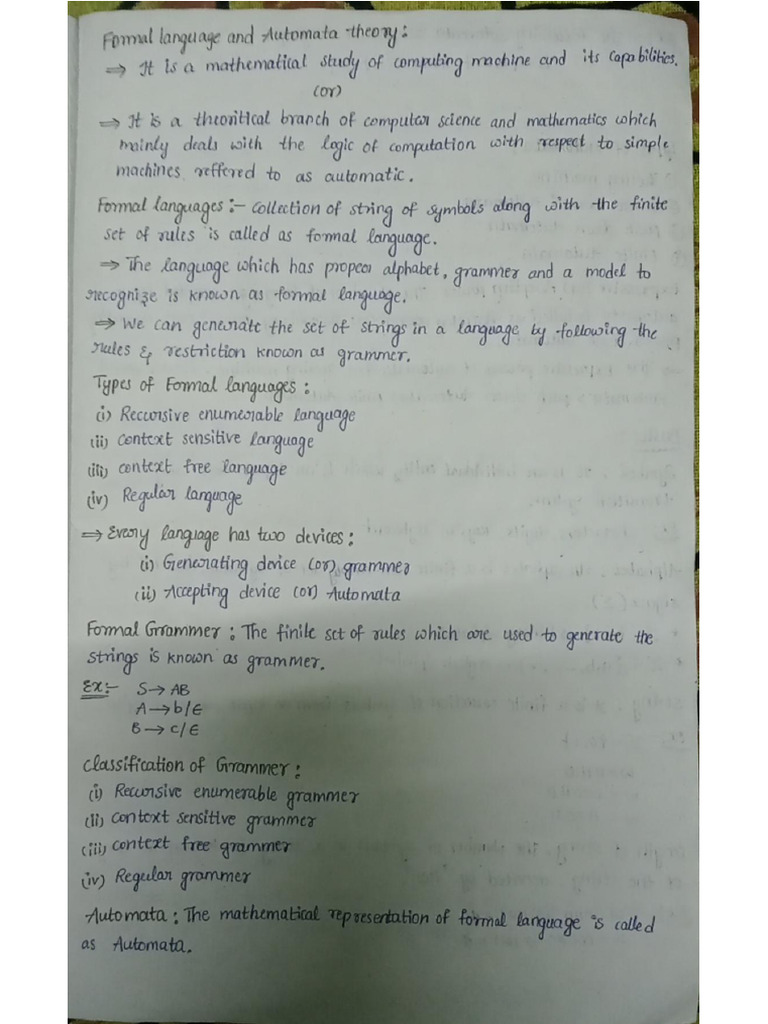 Formal language and Automata theory:
⇒ It is a mathematical study of computing machine and its capabilities.
(or)
⇒ It is a theoritical branch of computer science and mathematics which
mainly deals with the logic of computation with respect to simple
machines reffered to as automatic.
Formal languages:- Collection of string of symbols along with the finite
set of rules is called as formal language.
⇒ The language which has proper alphabet, grammer and a model to
recognize is known as formal language.
⇒ We can generate the set of strings in a language by following the
rules & restriction known as grammer.
Types of Formal languages:
(i) Reccursive enumerable language
(ii) Context sensitive language
(iii) context free language
(iv) Regular language
⇒ Every language has two devices:
(i) Generating device (or) grammer
(ii) Accepting device (or) Automata
Formal Grammer: The finite set of rules which are used to generate the
strings is known as grammer.
Ex:- S→AB
A→b/ϵ
B→c/ϵ
Classification of Grammer:
(i) Recursive enumerable grammer
(ii) context sensitive grammer
(iii) context free grammer
(iv) Regular grammer
Automata: The mathematical representation of formal language is called
as Automata.